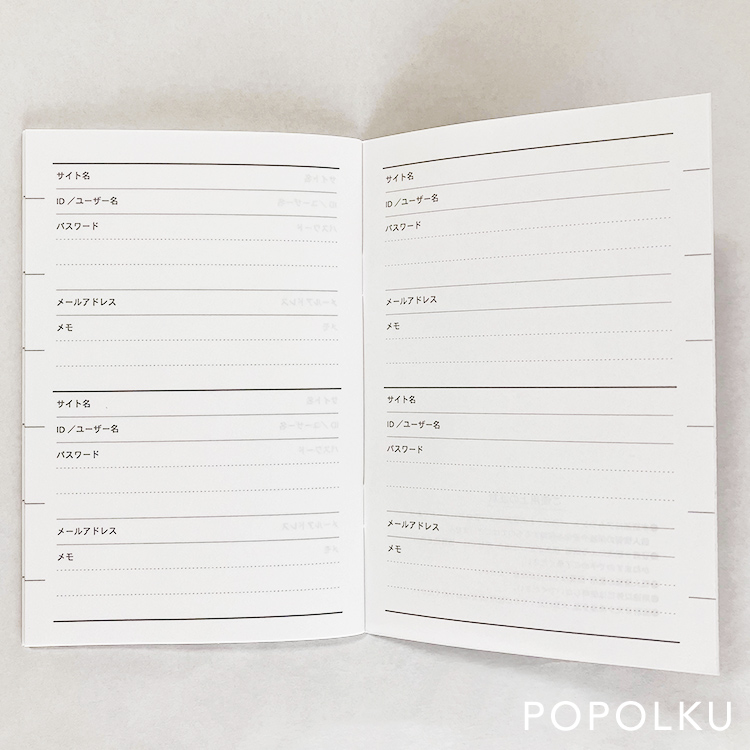 サイト名
ID／ユーザー名
パスワード
メールアドレス
メモ
サイト名
ID／ユーザー名
パスワード
メールアドレス
メモ
サイト名
ID／ユーザー名
パスワード
メールアドレス
メモ
サイト名
ID／ユーザー名
パスワード
メールアドレス
メモ
POPOLKU